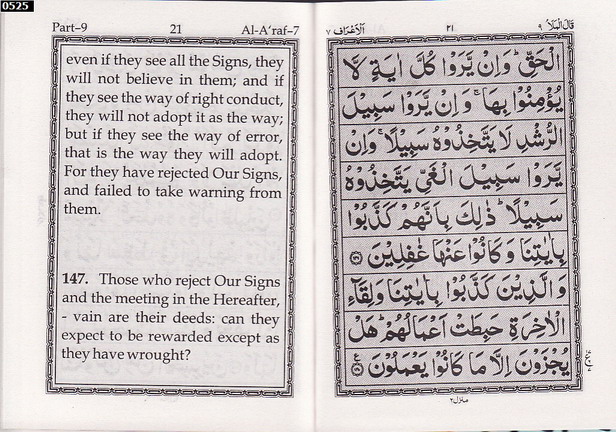 0525
Part–9 21 Al-A'raf–7
even if they see all the Signs, they
will not believe in them; and if
they see the way of right conduct,
they will not adopt it as the way;
but if they see the way of error,
that is the way they will adopt.
For they have rejected Our Signs,
and failed to take warning from
them.
147. Those who reject Our Signs
and the meeting in the Hereafter,
- vain are their deeds: can they
expect to be rewarded except as
they have wrought?
قَالَ الْمَلَاُ ٩ ٢١ اَلْاَعْرَاف ٧
الْحَقِّ ؕ وَاِنْ يَّرَوْا كُلَّ اٰيَةٍ لَّا
يُؤْمِنُوْا بِهَا ۚ وَاِنْ يَّرَوْا سَبِيْلَ
الرُّشْدِ لَا يَتَّخِذُوْهُ سَبِيْلًا ۚ وَاِنْ
يَّرَوْا سَبِيْلَ الْغَيِّ يَتَّخِذُوْهُ
سَبِيْلًا ؕ ذٰلِكَ بِاَنَّهُمْ كَذَّبُوْا
بِاٰيٰتِنَا وَكَانُوْا عَنْهَا غٰفِلِيْنَ
وَالَّذِيْنَ كَذَّبُوْا بِاٰيٰتِنَا وَلِقَآءِ
الْاٰخِرَةِ حَبِطَتْ اَعْمَالُهُمْ ؕ هَلْ
يُجْزَوْنَ اِلَّا مَا كَانُوْا يَعْمَلُوْنَ
منزل ٢